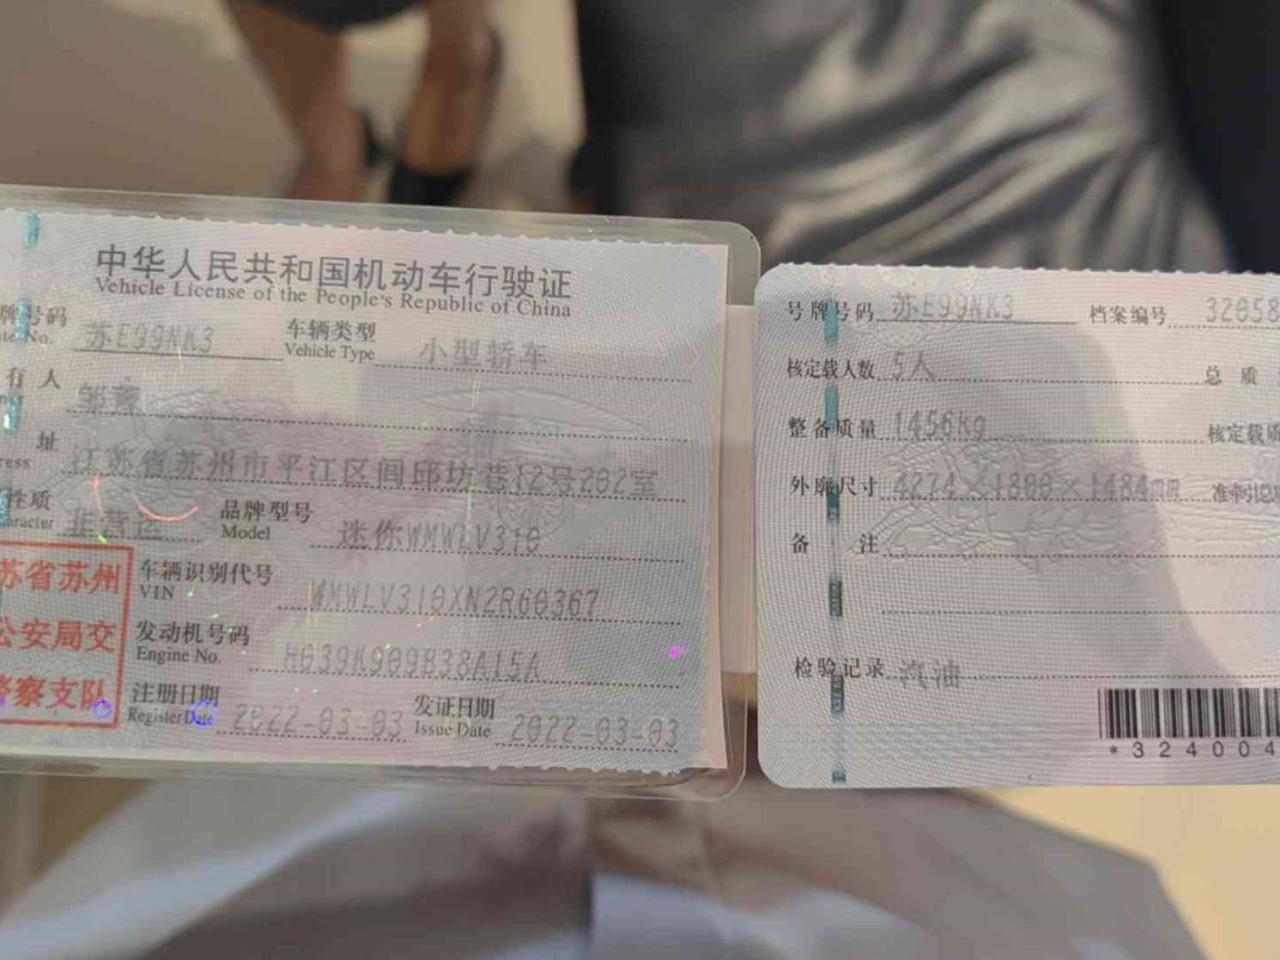 中华人民共和国机动车行驶证
Vehicle License of the People's Republic of China
牌号码 苏E99NK3 车辆类型 小型轿车
No. Vehicle Type
有 人 邹
址 江苏省苏州市平江区闾邱坊巷12号202室
性质 非营运 品牌型号 迷你WMWLV310
Model
苏省苏州
公安局交
警察支队
车辆识别代号 WMWLV310XN2R60367
VIN
发动机号码 H039K909B38A15A
Engine No.
注册日期 2022-03-03 发证日期 2022-03-03
Register Date Issue Date
号牌号码 苏E99NK3 档案编号 32058
核定载人数 5人 总 质
整备质量 1456kg 核定载质
外廓尺寸 4274×1800×1484mm 准牵引总
备 注
检验记录 汽油
*324004